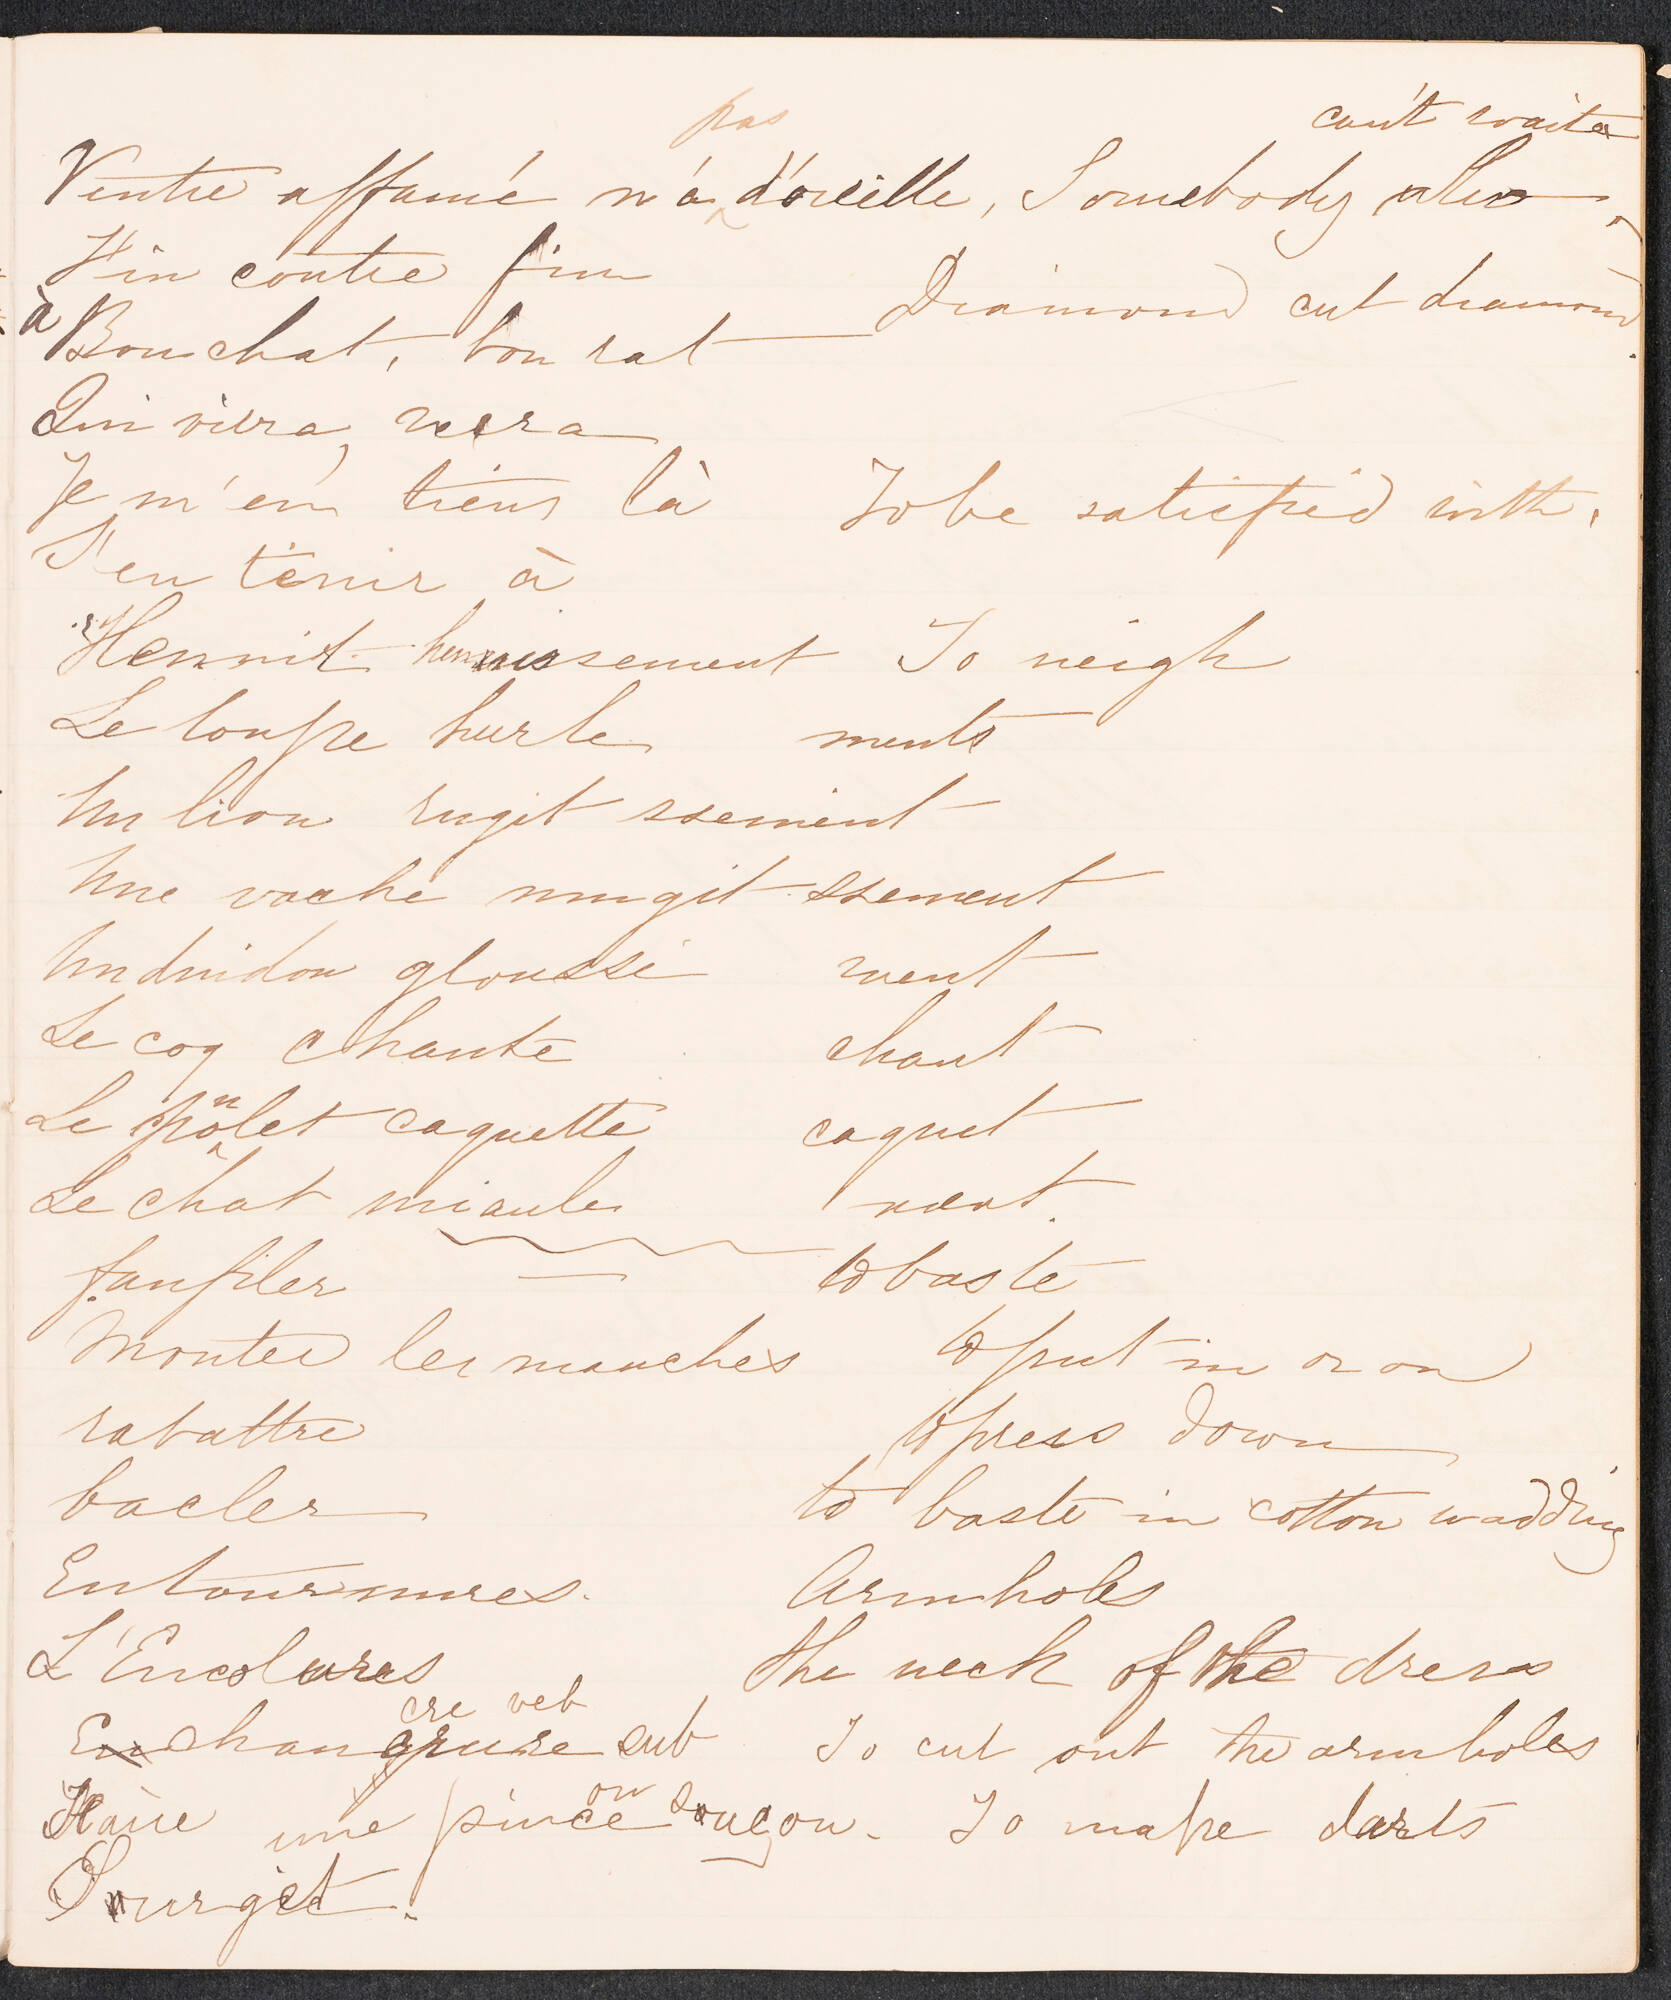 pas can't waite
Ventre affamé n'a d'oreille, Somebody who
Fin contre fin Diamond cut diamond.
à Bon chat, bon rat
Qui vivra, verra
Je m'en tiens là To be satisfied with.
S'en tenir à
Hennit hennissement To neigh
Le loupe hurle ments
Un lion rugit ssement
Une vache mugit ssement
Un dindon glousse ment
Le coq chante chant
Le poulet caquette caquet
Le chat miaule ment
faufiler to baste
Monter les manches to put in or on
rabattre to press down
bacler to baste in cotton wadding
Entournures. Armholes
L'Encolures the neck of the dress
cre veb
Enchangrure sub To cut out the armholes
Faire une pince ou suçon. To make darts
Surgèt.